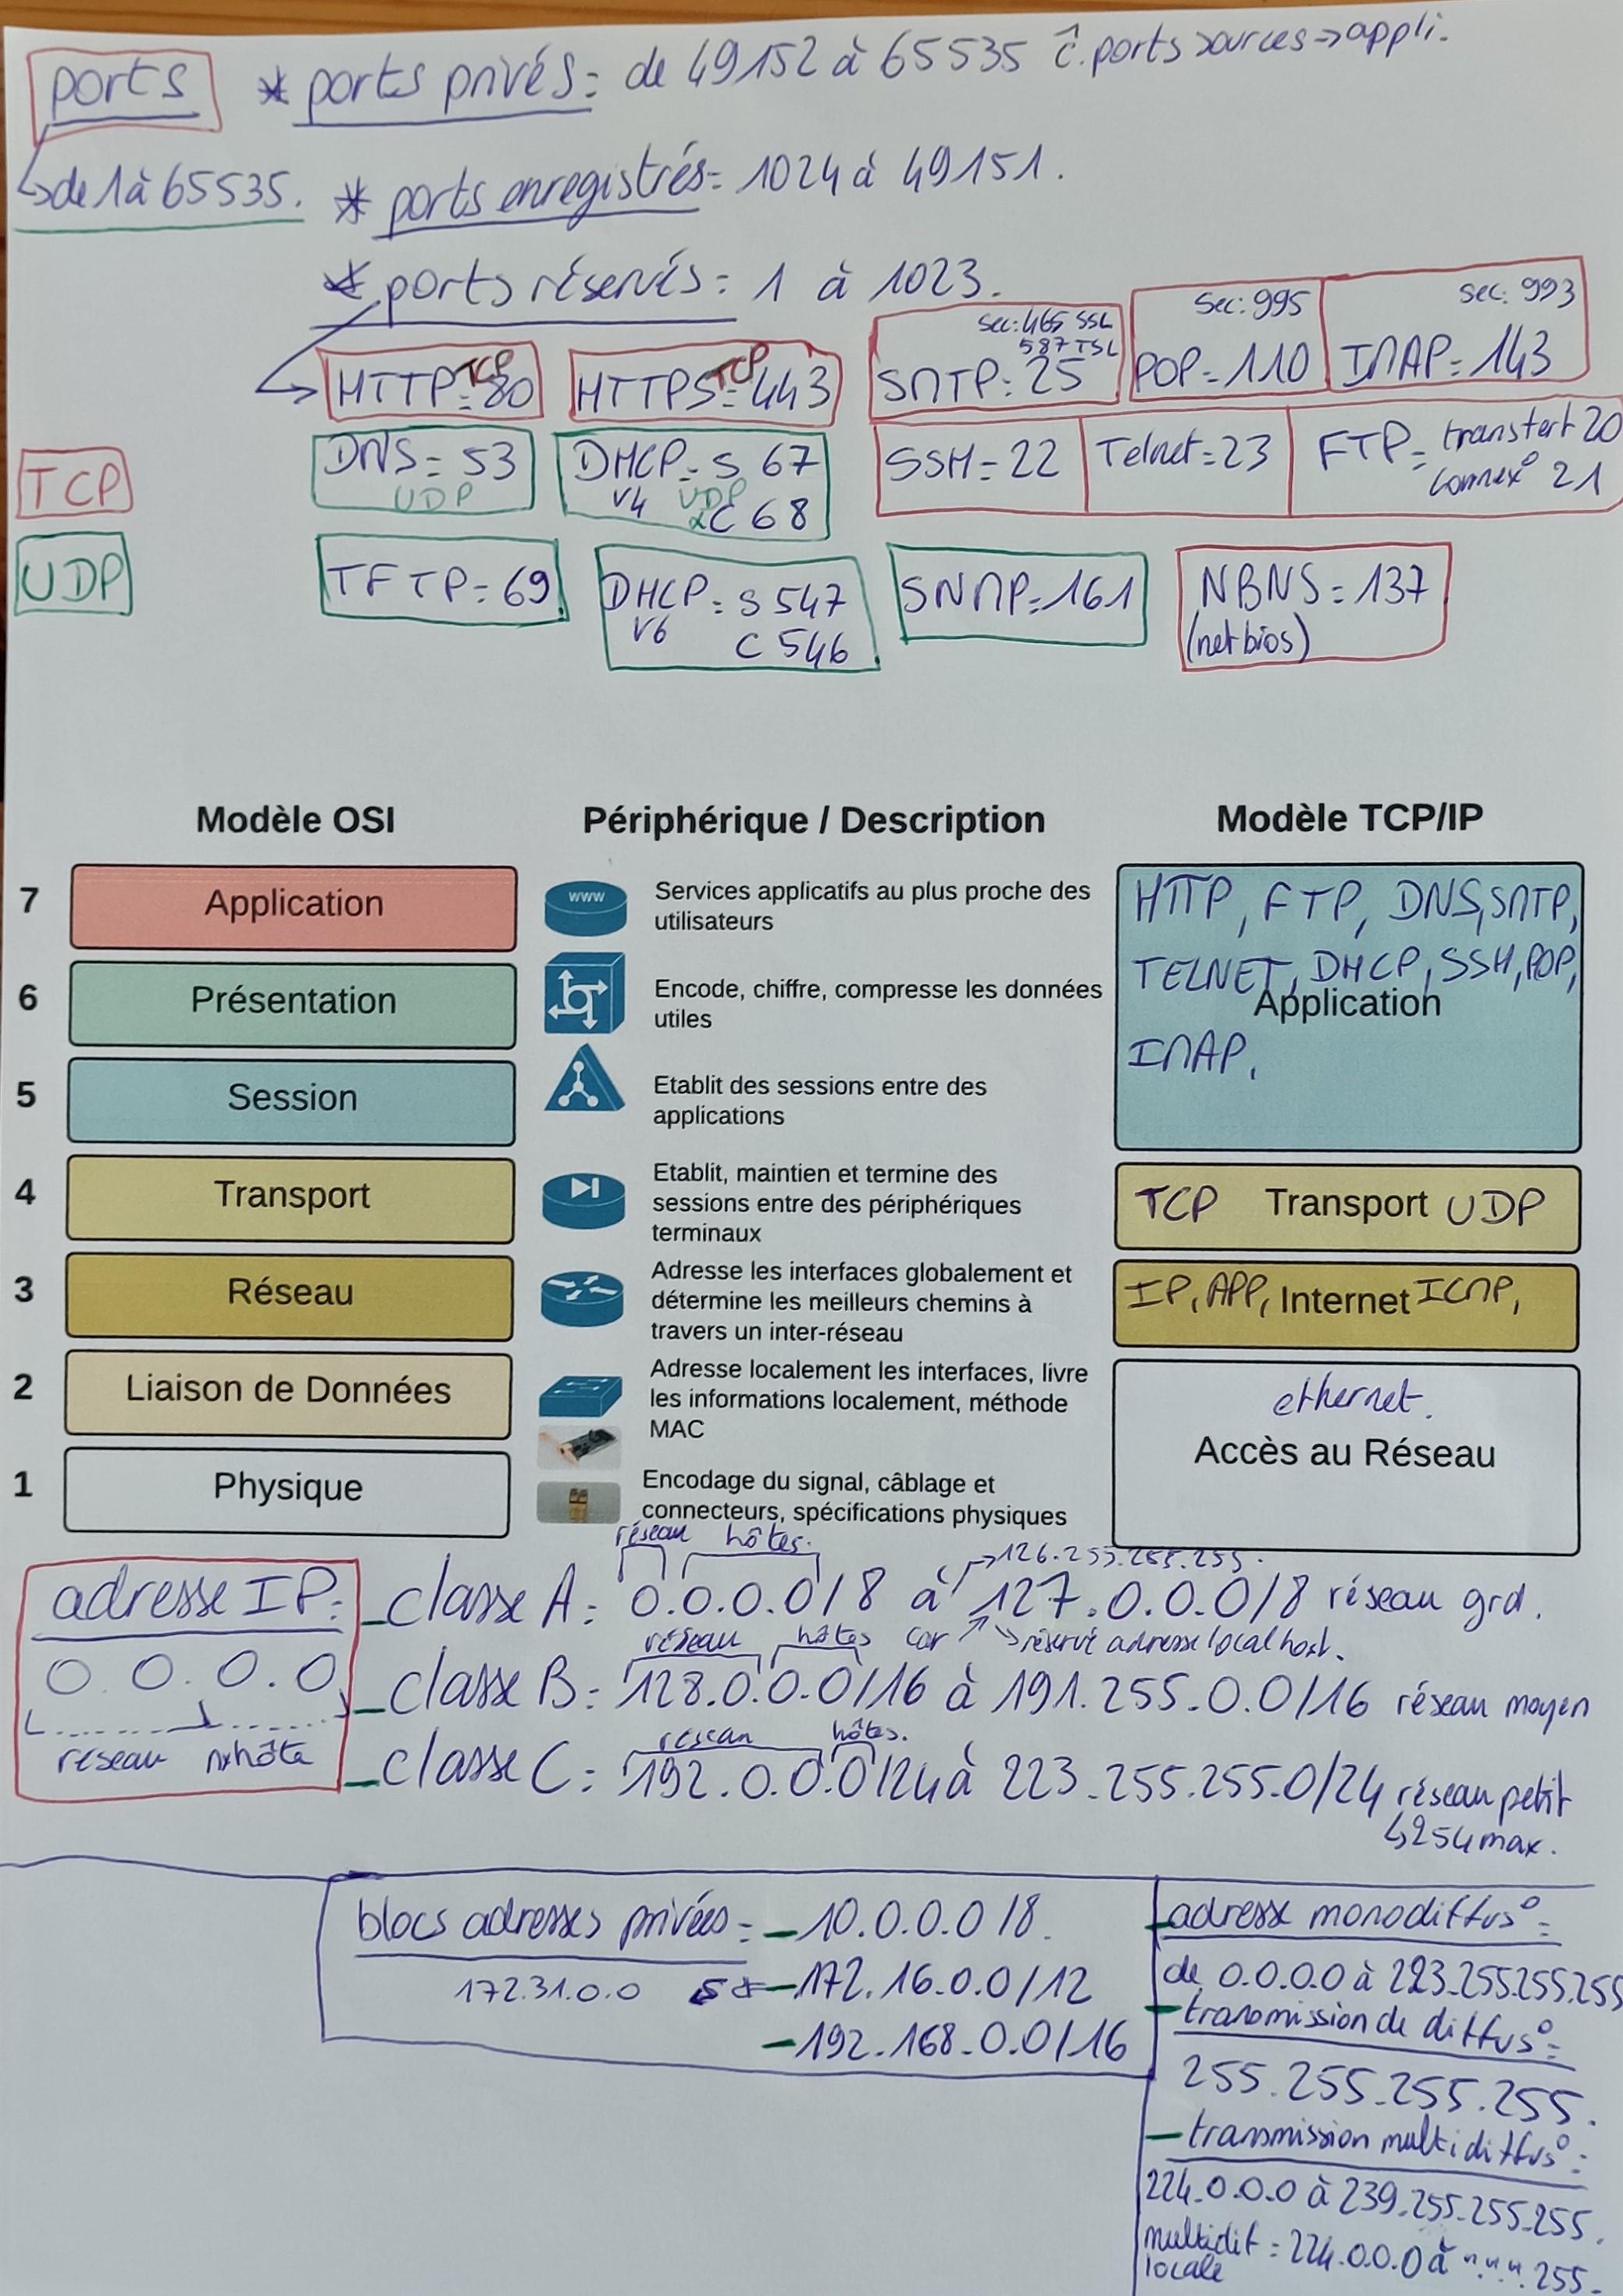 ports * ports privés = de 49152 à 65535 ĉ. ports sources => appli.
↳ de 1 à 65535. * ports enregistrés = 1024 à 49151.
* ports réservés = 1 à 1023.
HTTP = 80 TCP
HTTPS = 443 TCP
sec: 465 SSL
587 TSL
SMTP = 25
sec: 995
POP = 110
sec: 993
IMAP = 143
TCP
DNS = 53
UDP
DHCP = S 67
v4 UDP C 68
SSH = 22
Telnet = 23
FTP = transfert 20
connex° 21
UDP
TFTP = 69
DHCP = S 547
v6 C 546
SNMP = 161
NBNS = 137
(netbios)
Modèle OSI Périphérique / Description Modèle TCP/IP
7 Application
www
Services applicatifs au plus proche des
utilisateurs
6 Présentation
Encode, chiffre, compresse les données
utiles
5 Session
Etablit des sessions entre des
applications
HTTP, FTP, DNS, SMTP,
TELNET, DHCP, SSH, POP,
Application
IMAP,
4 Transport
Etablit, maintien et termine des
sessions entre des périphériques
terminaux
TCP Transport UDP
3 Réseau
Adresse les interfaces globalement et
détermine les meilleurs chemins à
travers un inter-réseau
IP, APP, Internet ICMP,
2 Liaison de Données
Adresse localement les interfaces, livre
les informations localement, méthode
MAC
ethernet.
Accès au Réseau
1 Physique
Encodage du signal, câblage et
connecteurs, spécifications physiques
adresse IP =
0.0.0.0
réseau hôte
réseau hôtes. → 126.255.255.255.
_classe A = 0.0.0.0/8 à 127.0.0.0/8 réseau grd.
car ↗ ↘ réservé adresse localhost.
réseau hôtes
_classe B = 128.0.0.0/16 à 191.255.0.0/16 réseau moyen
réseau hôtes.
_classe C = 192.0.0.0/24 à 223.255.255.0/24 réseau petit
↳ 254 max.
blocs adresses privées = - 10.0.0.0/8.
172.31.0.0 - 172.16.0.0/12
- 192.168.0.0/16
- adresse monodiffus° =
de 0.0.0.0 à 223.255.255.255
- transmission de diffus° =
255.255.255.255.
- transmission multidiffus° =
224.0.0.0 à 239.255.255.255.
multidif = 224.0.0.0 à " " " 255.
locale